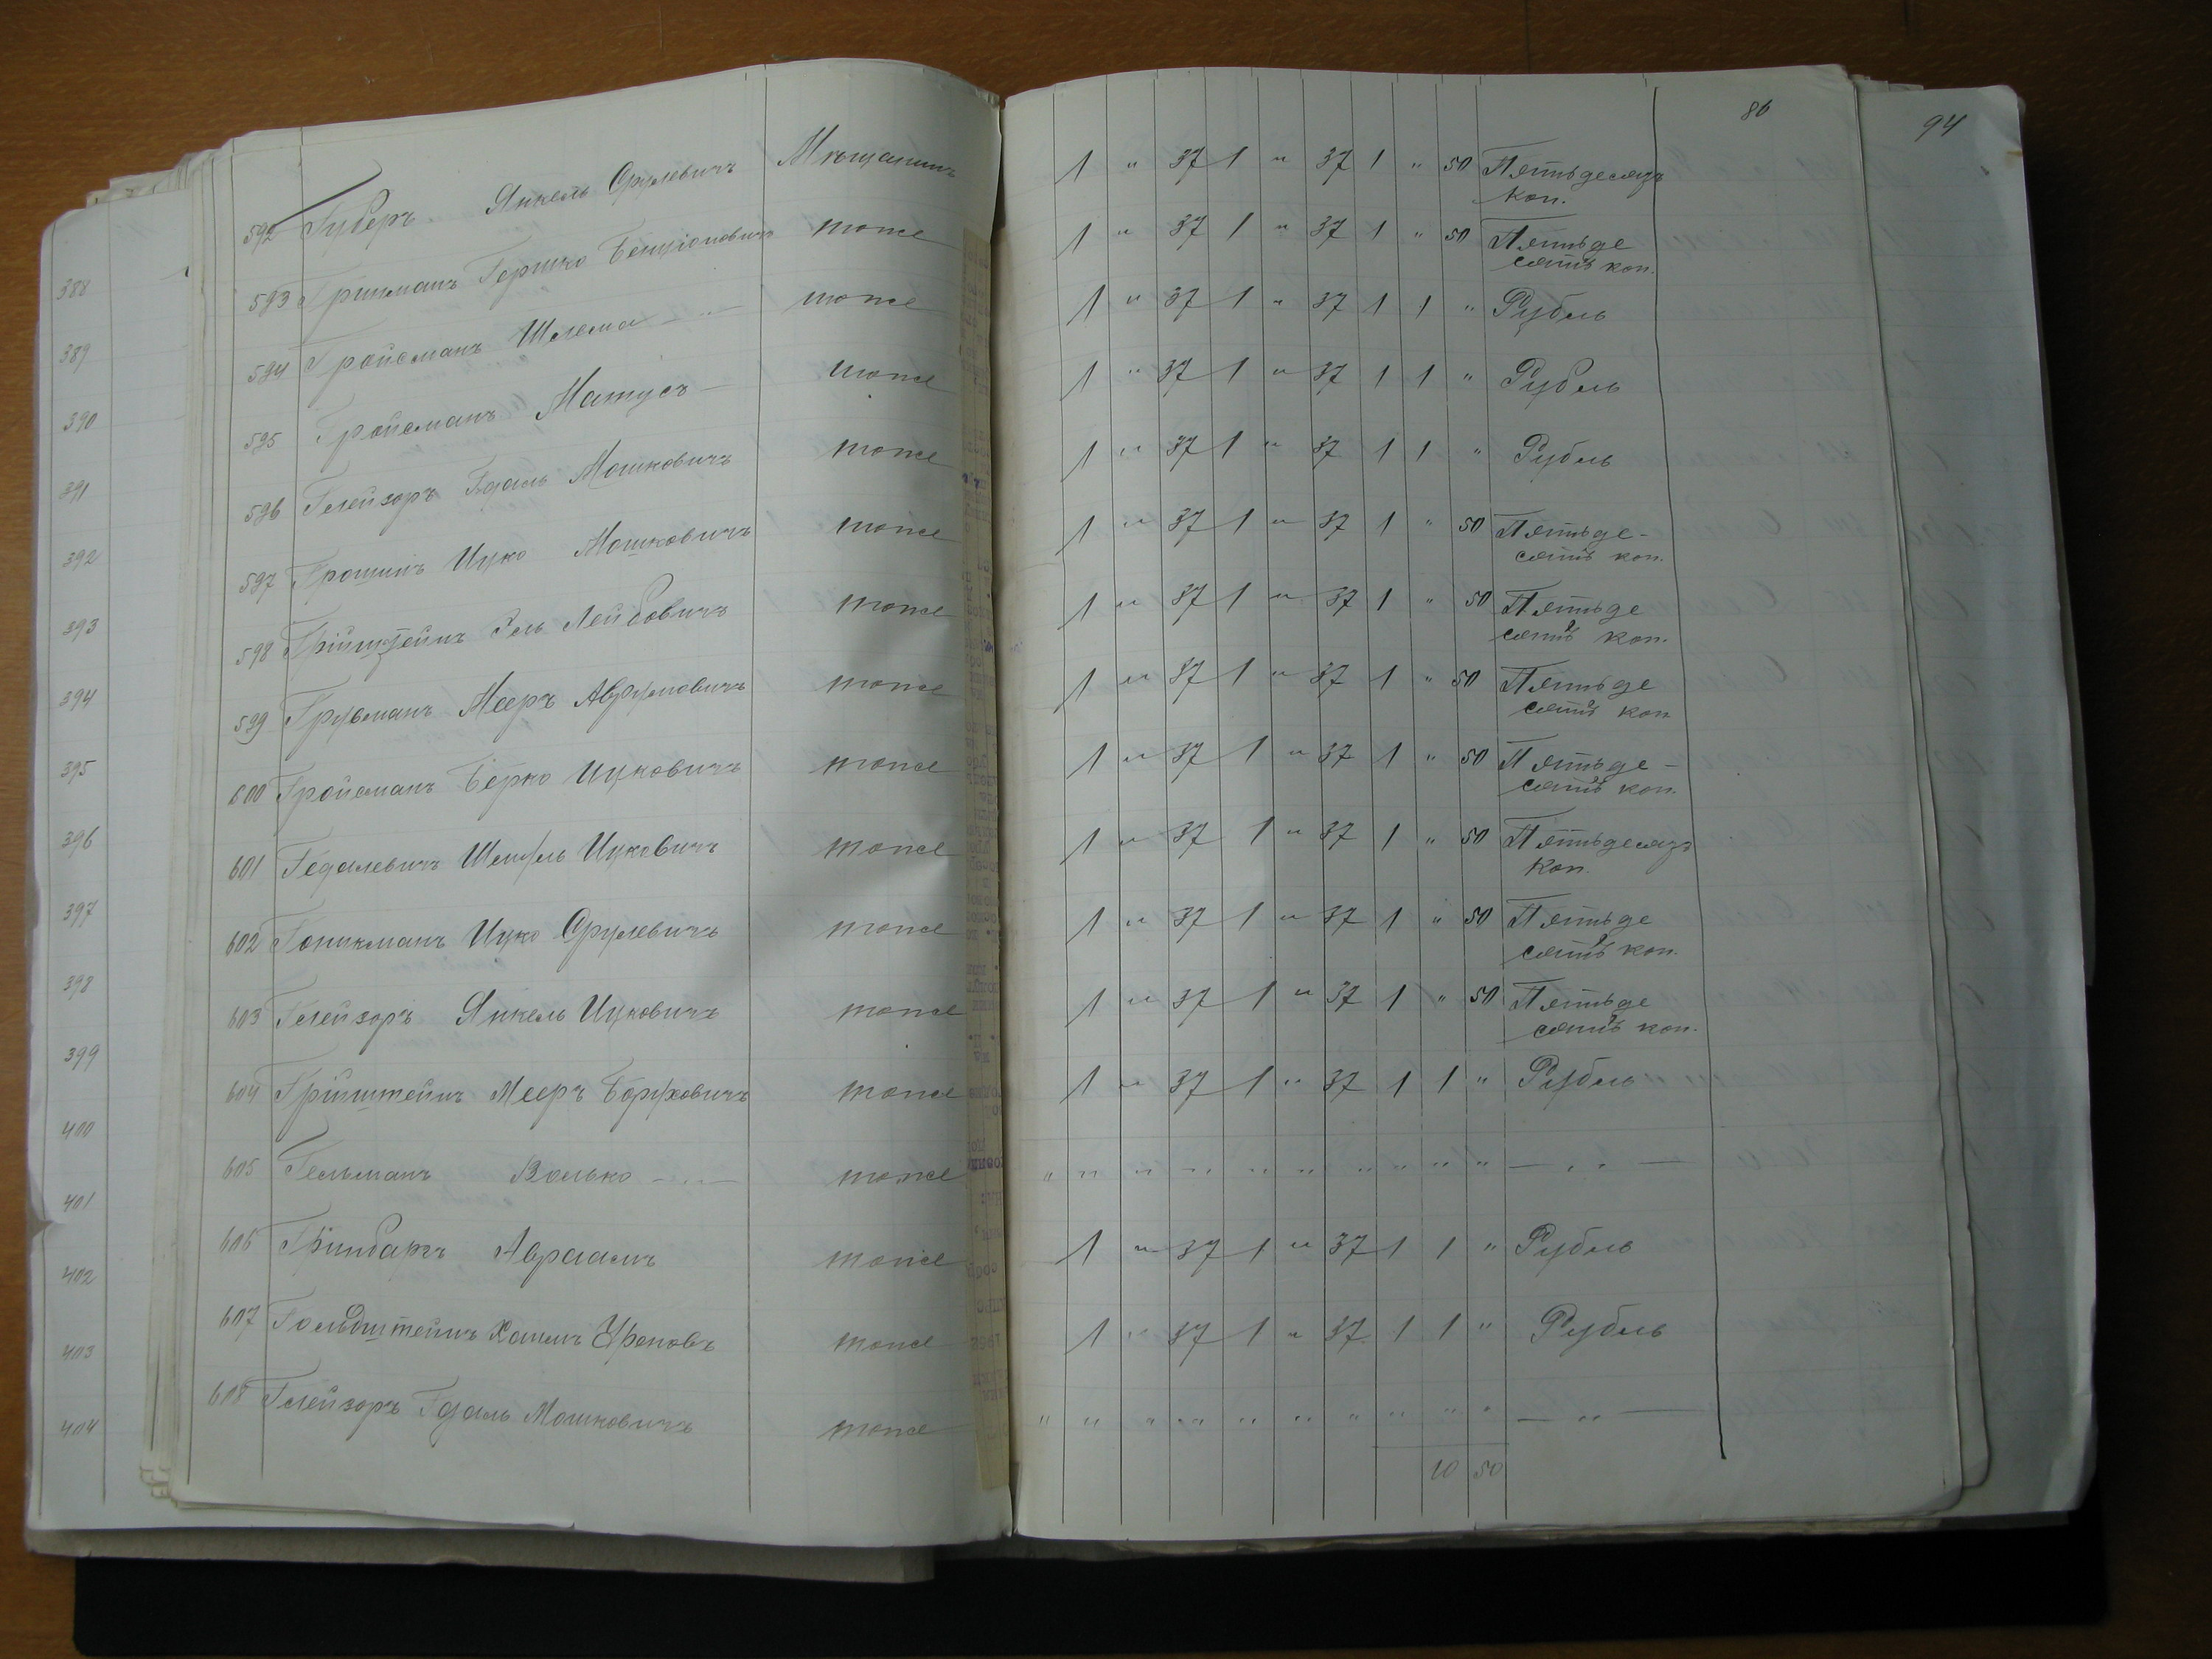 86
94
592 Губеръ Янкель Срулевичъ Мѣщанинъ 1 " 37 1 " 37 1 " 50 Пятьдесятъ
коп.
593 Гринманъ Гершко Бенціоновичъ тоже 1 " 37 1 " 37 1 " 50 Пятьде
сятъ коп.
594 Гройсманъ Шлема — " — тоже 1 " 37 1 " 37 1 1 " Рубль
595 Гройсманъ Матусъ — тоже 1 " 37 1 " 37 1 1 " Рубль
596 Глейзоръ Гдаль Мошковичъ тоже 1 " 37 1 " 37 1 1 " Рубль
597 Ицко Мошковичъ тоже 1 " 37 1 " 37 1 " 50 Пятьде-
сятъ коп.
598 Грінштейнъ Іель Лейбовичъ тоже 1 " 37 1 " 37 1 " 50 Пятьде
сятъ коп.
599 Мееръ Аврумовичъ тоже 1 " 37 1 " 37 1 " 50 Пятьде
сятъ коп.
600 Гройсманъ Берко Ицковичъ тоже 1 " 37 1 " 37 1 " 50 Пятьде-
сятъ коп.
601 Гедалевичъ Ицковичъ тоже 1 " 37 1 " 37 1 " 50 Пятьдесятъ
коп.
602 Гоникманъ Ицко Срулевичъ тоже 1 " 37 1 " 37 1 " 50 Пятьде
сятъ коп.
603 Глейзоръ Янкель Ицковичъ тоже 1 " 37 1 " 37 1 " 50 Пятьде
сятъ коп.
604 Грінштейнъ Мееръ Боруховичъ тоже 1 " 37 1 " 37 1 1 " Рубль
605 Гельманъ Волько — " — тоже " " " " " " " " " " — " —
606 Грінбаргъ Авраамъ тоже 1 " 37 1 " 37 1 1 " Рубль
607 Гольдштейнъ Хаимъ тоже 1 " 37 1 " 37 1 1 " Рубль
608 Глейзоръ Гдаль Мошковичъ тоже " " " " " " " " " " — " —
10 50
388
389
390
391
392
393
394
395
396
397
398
399
400
401
402
403
404